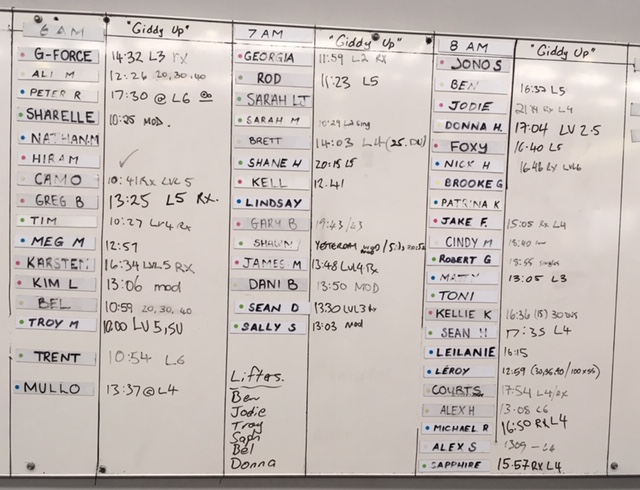 6 AM "Giddy Up"
G-FORCE 14:32 L3 rx
ALI M 12:26 20,30,40
PETER R 17:30 @ L6
SHARELLE 10:25 MOD.
NATHAN M
HIRAM ✓
CAMO 10:41 Rx LVL 5
GREG B 13:25 L5 Rx.
TIM 10:27 LVL4 Rx
MEG M 12:57
KARSTEN 16:34 LVL5 RX
KIM L 13:06 mod
BEL 10:59 20,30,40
TROY M LV 5, SU
TRENT 10:54 L6
MULLO 13:37 @ L4
7 AM "Giddy Up"
GEORGIA 11:59 L2 RX
ROD 11:23 L5
SARAH LJ
SARAH M 10:29 L2
BRETT 14:03 L4 (25. DU)
SHANE H 20:15 L5
KELL 12.41
LINDSAY
GARY B 19:43 / L3
SHAUN YESTERDAY
JAMES M 13:48 LVL4 Rx
DANI B 13:50 MOD
SEAN D 1330 LVL3
SALLY S 13:03 Mod
Lifters.
Ben
Jodie
Troy
Saph
Bel
Donna
8 AM "Giddy Up"
JONO S
BEN 16:37 L5
JODIE Rx L4
DONNA H. 17:04 LV 2.5
FOXY 16:40 L5
NICK H 16:46 Rx LVL6
BROOKE G
PATRINA K
JAKE F. 15:05 Rx L4
CINDY M 18:40
ROBERT G 18:55 singles
MATTY 13:05 L3
TONI
KELLIE K 16:36 (15)
SEAN H 17:35 L4
LEILANIE 16:15
LEROY 12:59
COURTS 17:54 L4/RX
ALEX H 13:08 L6
MICHAEL R 16:50 RX L4
ALEX S 1309 - L6
SAPPHIRE 15:57 RX L4